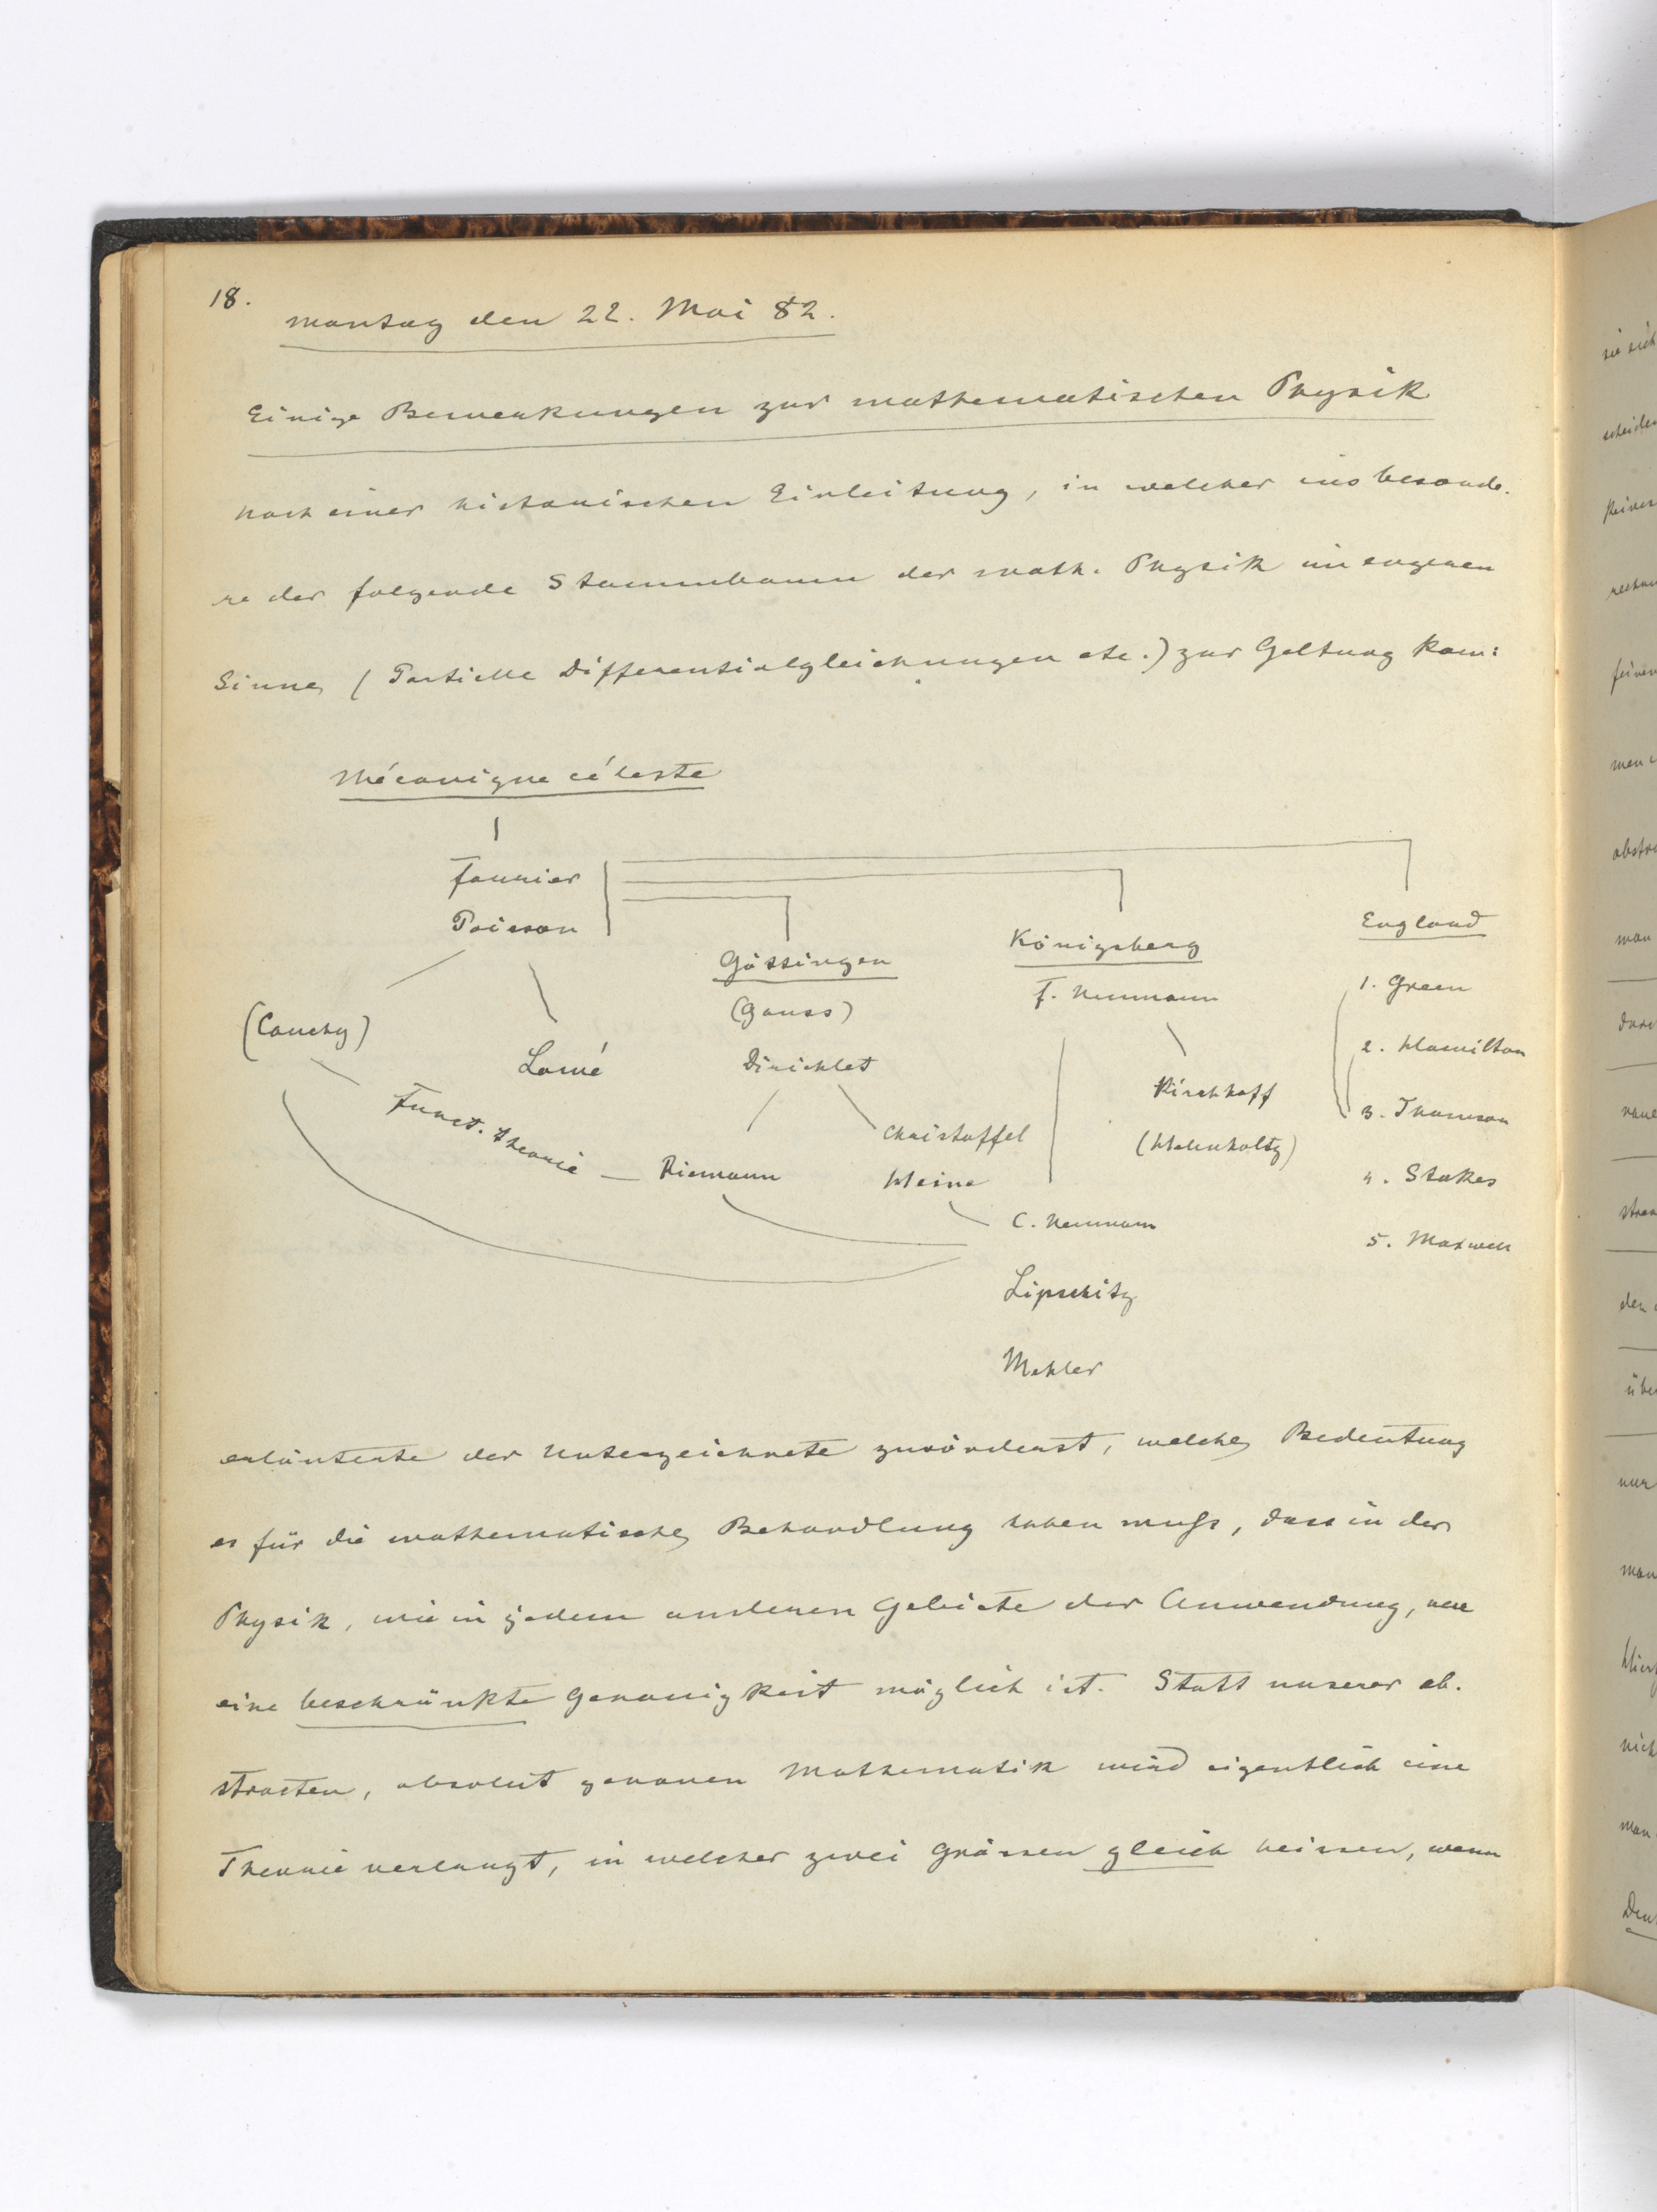 18.
Montag den 22. Mai 82.
Einige Bemerkungen zur mathematischen Physik
Nach einer historischen Einleitung, in welcher insbesonde-
re der folgende Stammbaum der math. Physik im engeren
Sinne (Partielle Differentialgleichungen etc.) zur Geltung kam:
Mécanique céleste
Fourier
Poisson
England
Göttingen
Königsberg
(Gauss)
F. Neumann
1. Green
(Cauchy)
Lamé
Dirichlet
Kirchhoff
2. Hamilton
Funct. theorie
Riemann
Christoffel
(Helmholtz)
3. Thomson
Heine
4. Stokes
C. Neumann
5. Maxwell
Lipschitz
Mehler
erläuterte der Unterzeichnete zuvörderst, welche Bedeutung
es für die mathematische Behandlung haben muss, dass in der
Physik, wie in jedem anderen Gebiete der Anwendung, nur
eine beschränkte Genauigkeit möglich ist. Statt unserer ab-
stracten, absolut genauen Mathematik wird eigentlich eine
Theorie verlangt, in welcher zwei Grössen gleich heissen, wenn